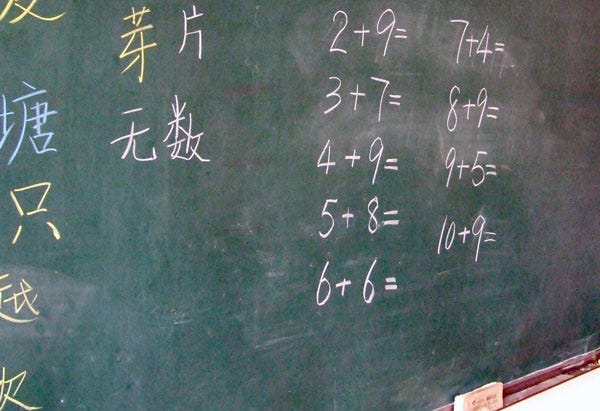 塘
只
越
芽片
无数
2+9=
3+7=
4+9=
5+8=
6+6=
7+4=
8+9=
9+5=
10+9=